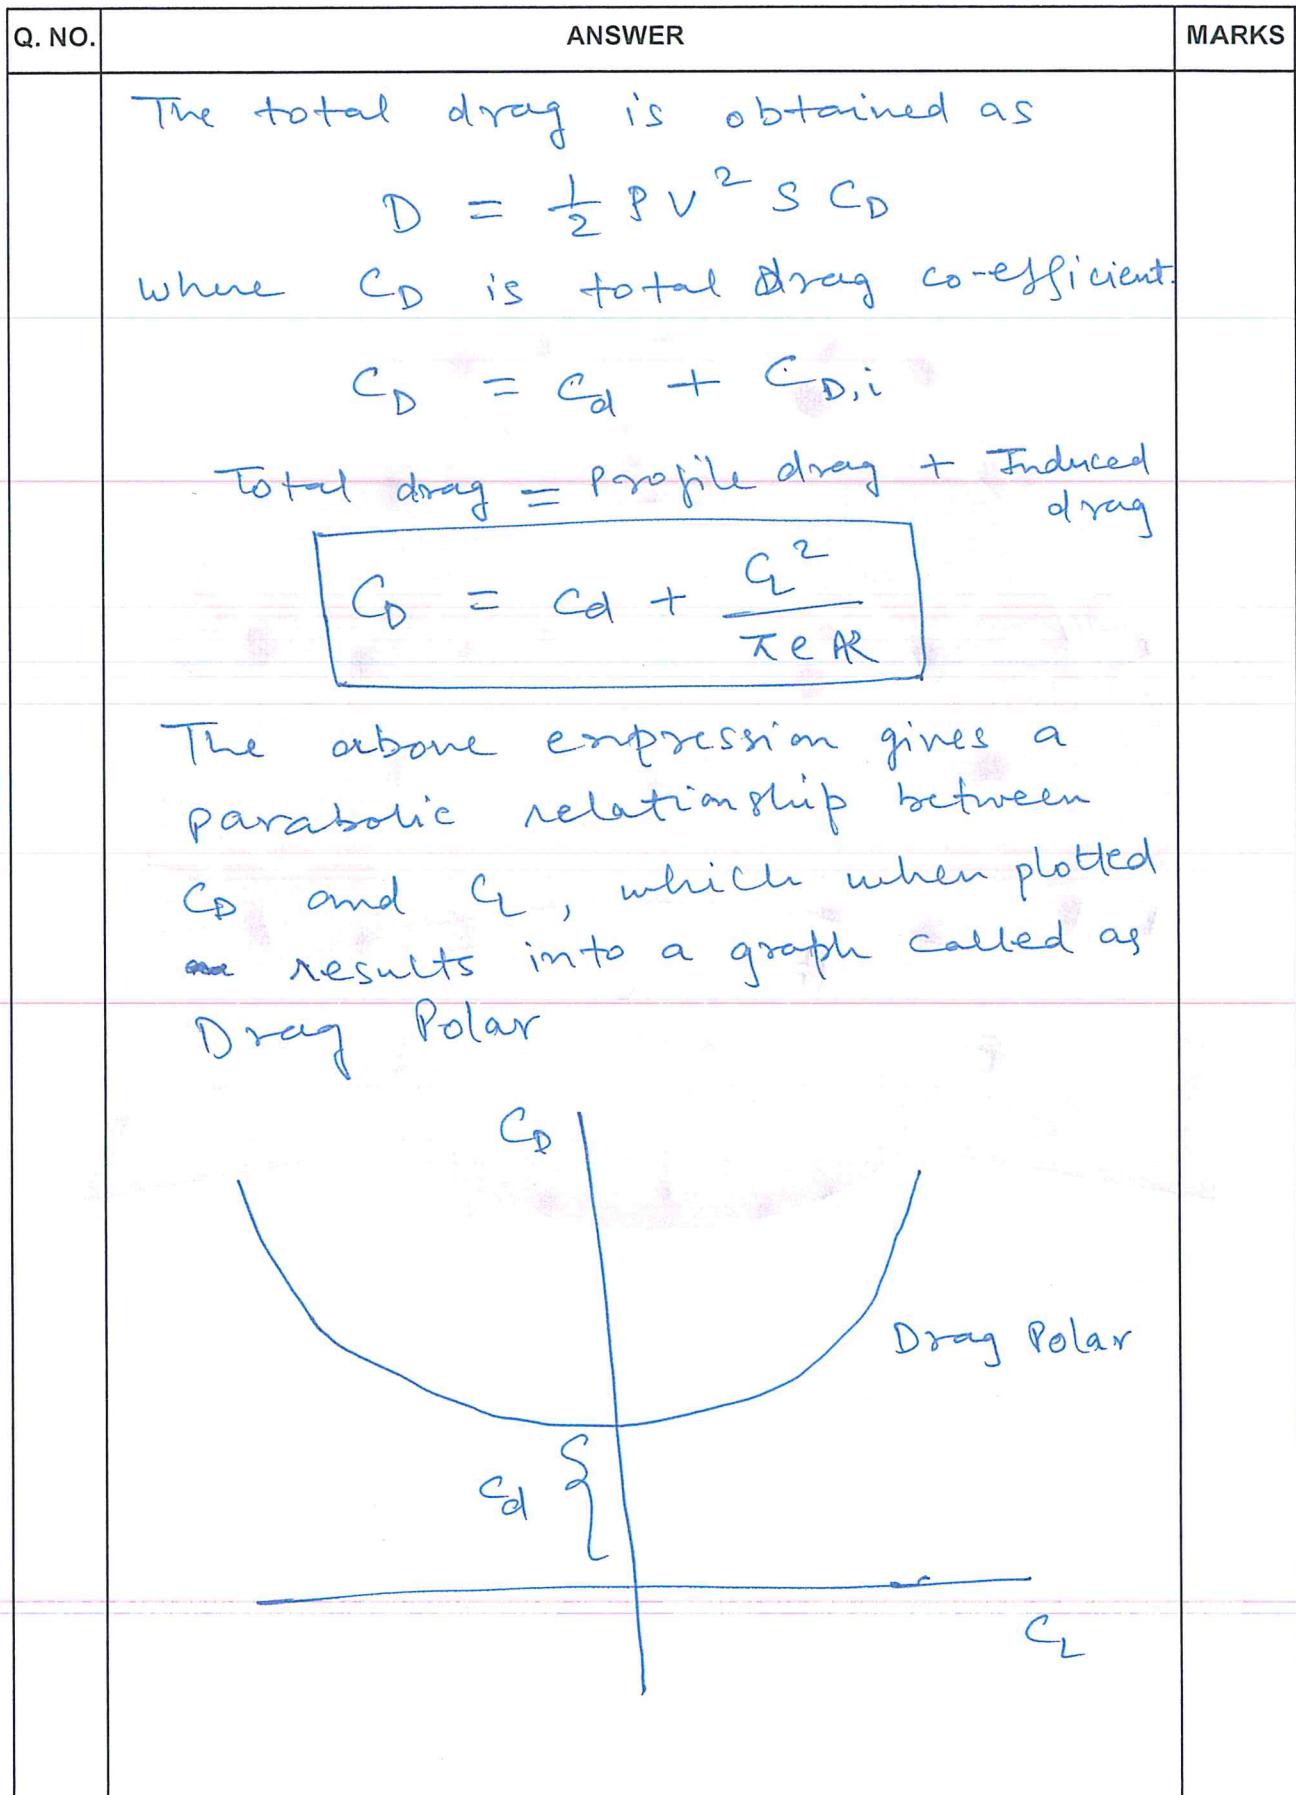 Q. NO. ANSWER MARKS
The total drag is obtained as
D = 1/2 ρ V² S C_D
where C_D is total drag co-efficient.
C_D = C_d + C_D,i
Total drag = Profile drag + Induced
drag
C_D = C_d + C_L² / π e AR
The above expression gives a
parabolic relationship between
C_D and C_L, which when plotted
results into a graph called as
Drag Polar
C_D
Drag Polar
C_d
C_L